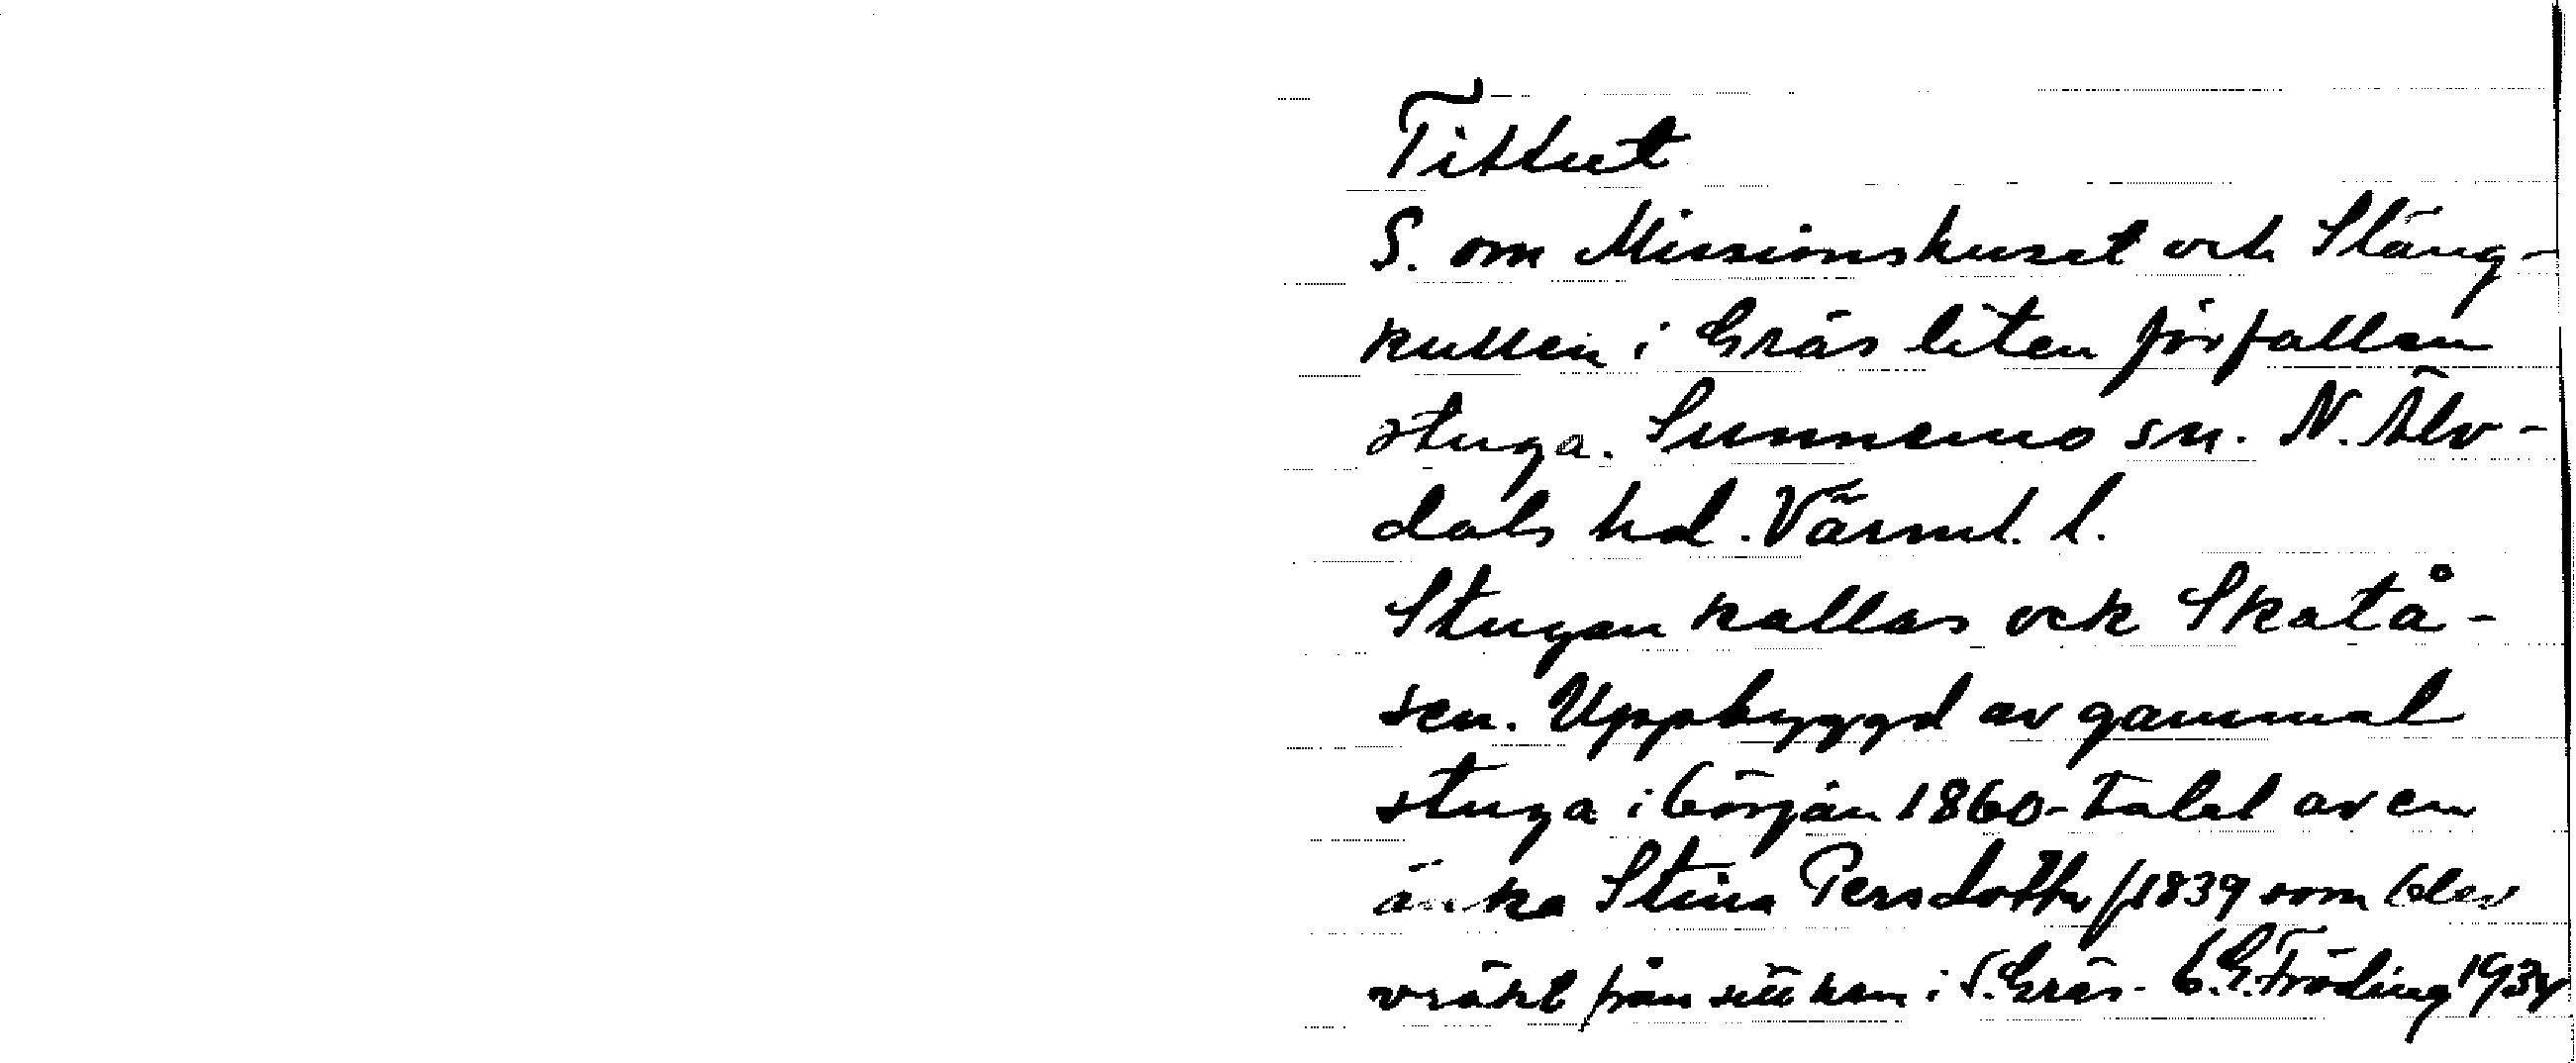 Tittut
S. om Missionshuset och Stäng-
kullen i Gräs liten förfallen
stuga. Sunnemo sn. N. Älv-
dals hd. Värml. l.
Stugan kallas ock Skatå-
sen. Uppbyggd av gammal
stuga i början 1860-talet av en
änka Stina Persdotter f 1839 som blev
vräkt från sitt hem i S. Gräs. G. Fröding 1934